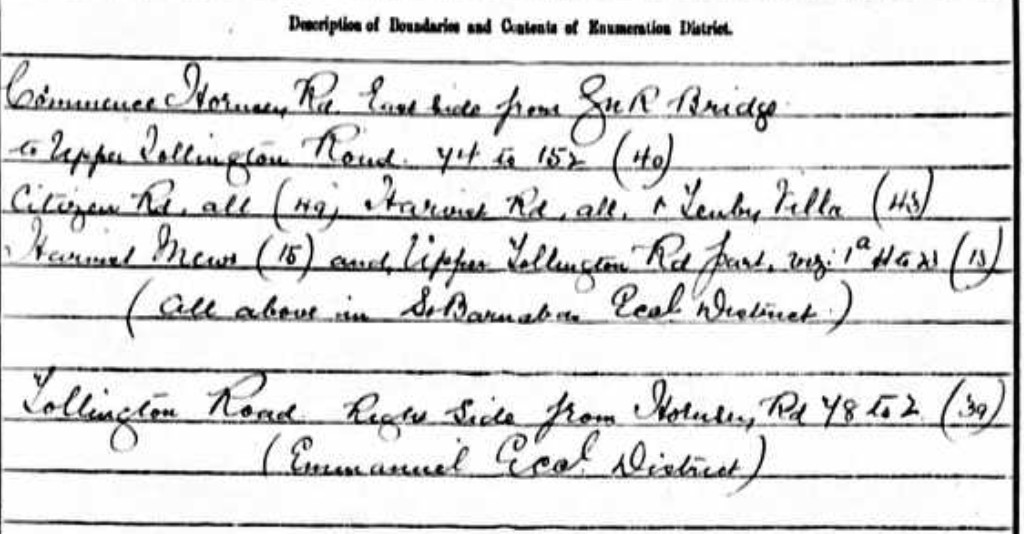 Description of Boundaries and Contents of Enumeration District.
Commence Hornsey Rd East Side from GNR Bridge
to Upper Tollington Road. 74 to 152 (40)
Citizen Rd, all (49) Harvist Rd, all, & Tenby Villa (43)
Harvist Mews (15) and Upper Tollington Rd part, viz: 1a (13)
(All above in St Barnabas Eccl District)
Tollington Road Right Side from Hornsey Rd 78 to 2 (39)
(Emmanuel Eccl District)